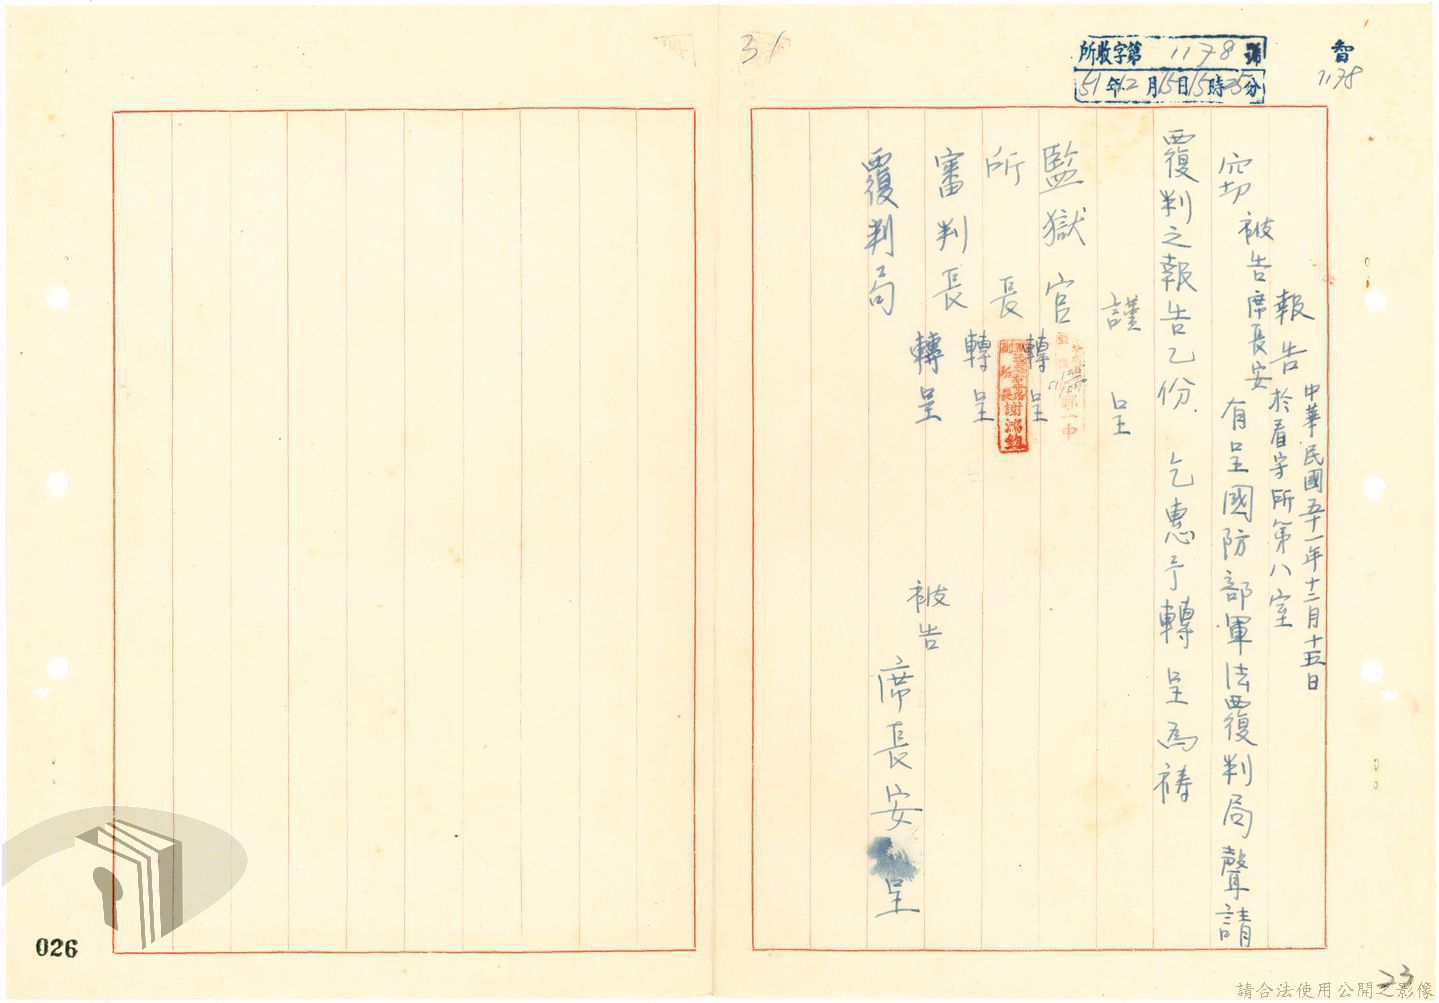 31
所收字第1178號
51年12月15日15時25分
智
1178
報告 中華民國五十一年十二月十五日
於看守所第八室
窃被告席長安有呈國防部軍法覆判局聲請
覆判之報告乙份.乞惠予轉呈為禱
謹呈
監獄官 轉呈
所長 轉呈
審判長 轉呈
覆判局
被告 席長安 呈
謝鴻
026
23
請合法使用公開之影像